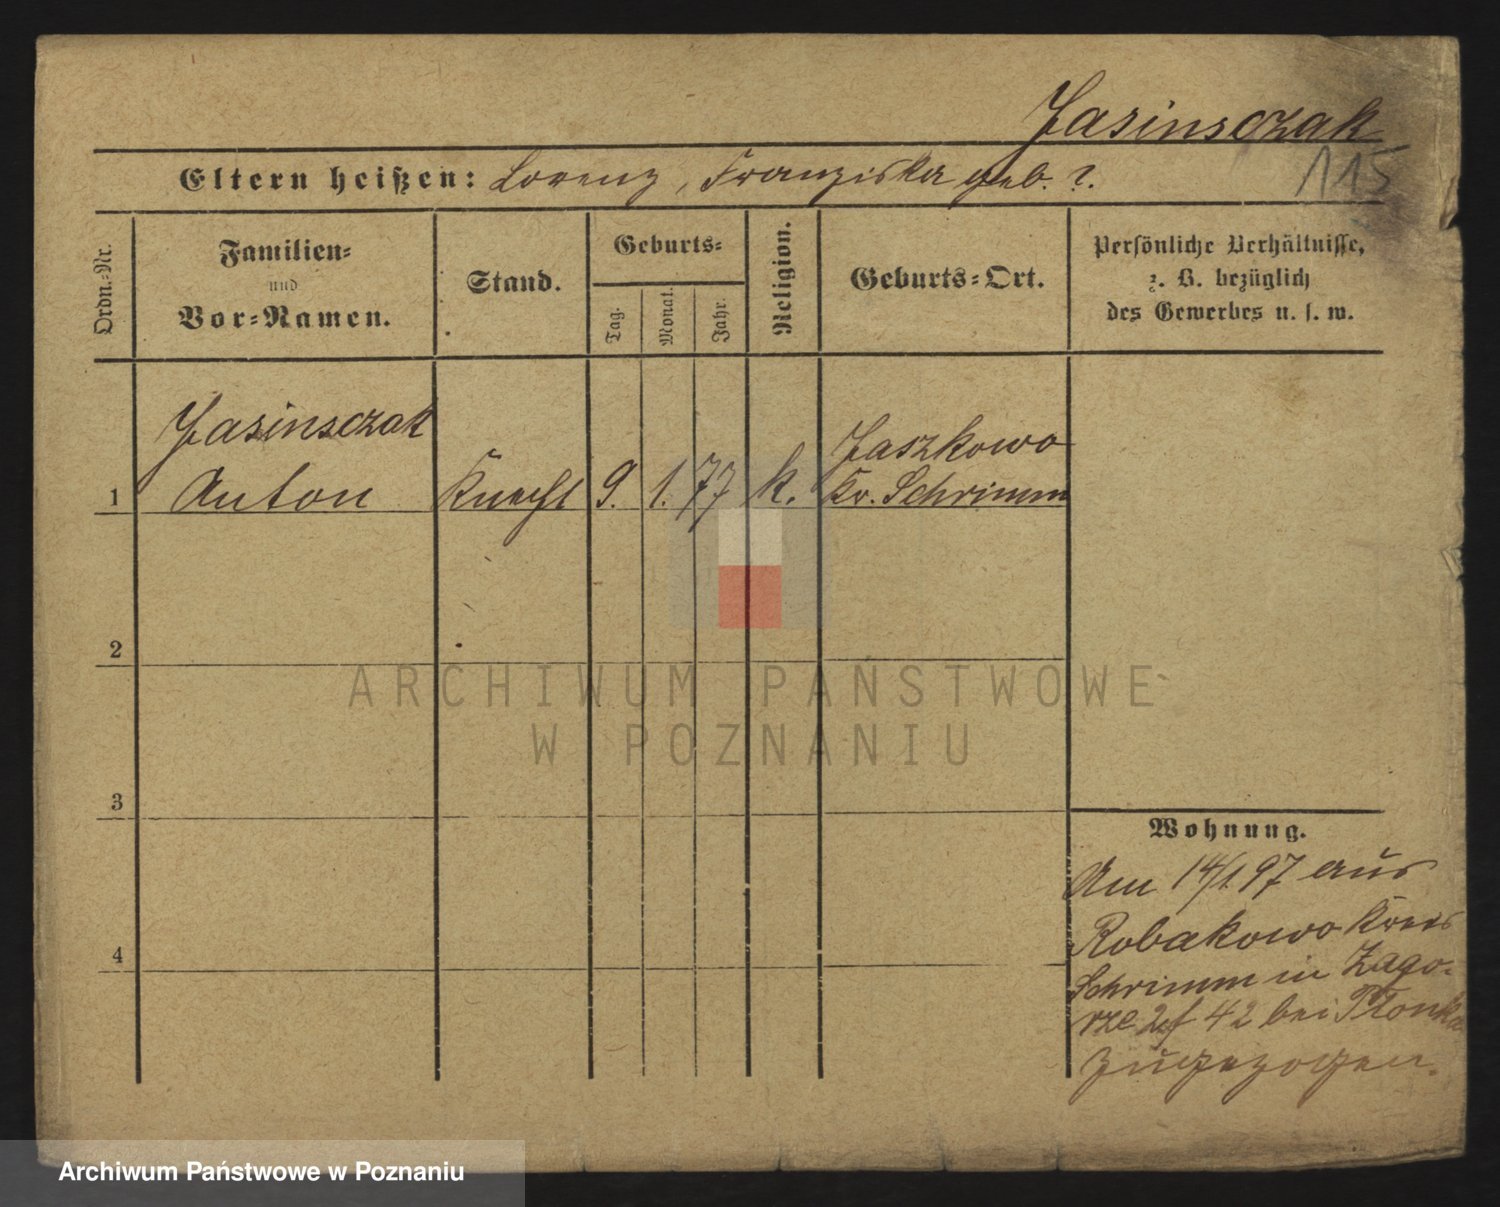 Jasinsczak
115
Eltern heißen: Lorenz, Franziska geb. ?.
Ordn.-Nr.
Familien-
und
Vor-Namen.
Stand.
Geburts-
Tag.
Monat.
Jahr.
Religion.
Geburts-Ort.
Persönliche Verhältnisse,
z. B. bezüglich
des Gewerbes u. s. w.
Jasinsczak
Jaszkowo
1 Anton Knecht 9. 1. 77 k. Kr. Schrimm
2
ARCHIWUM PAŃSTWOWE
W POZNANIU
3
Wohnung.
Am 14/1 97 aus
Robakowo Kreis
4
Schrimm in Zago-
rze 42 bei Płonka
zugezogen.
Archiwum Państwowe w Poznaniu